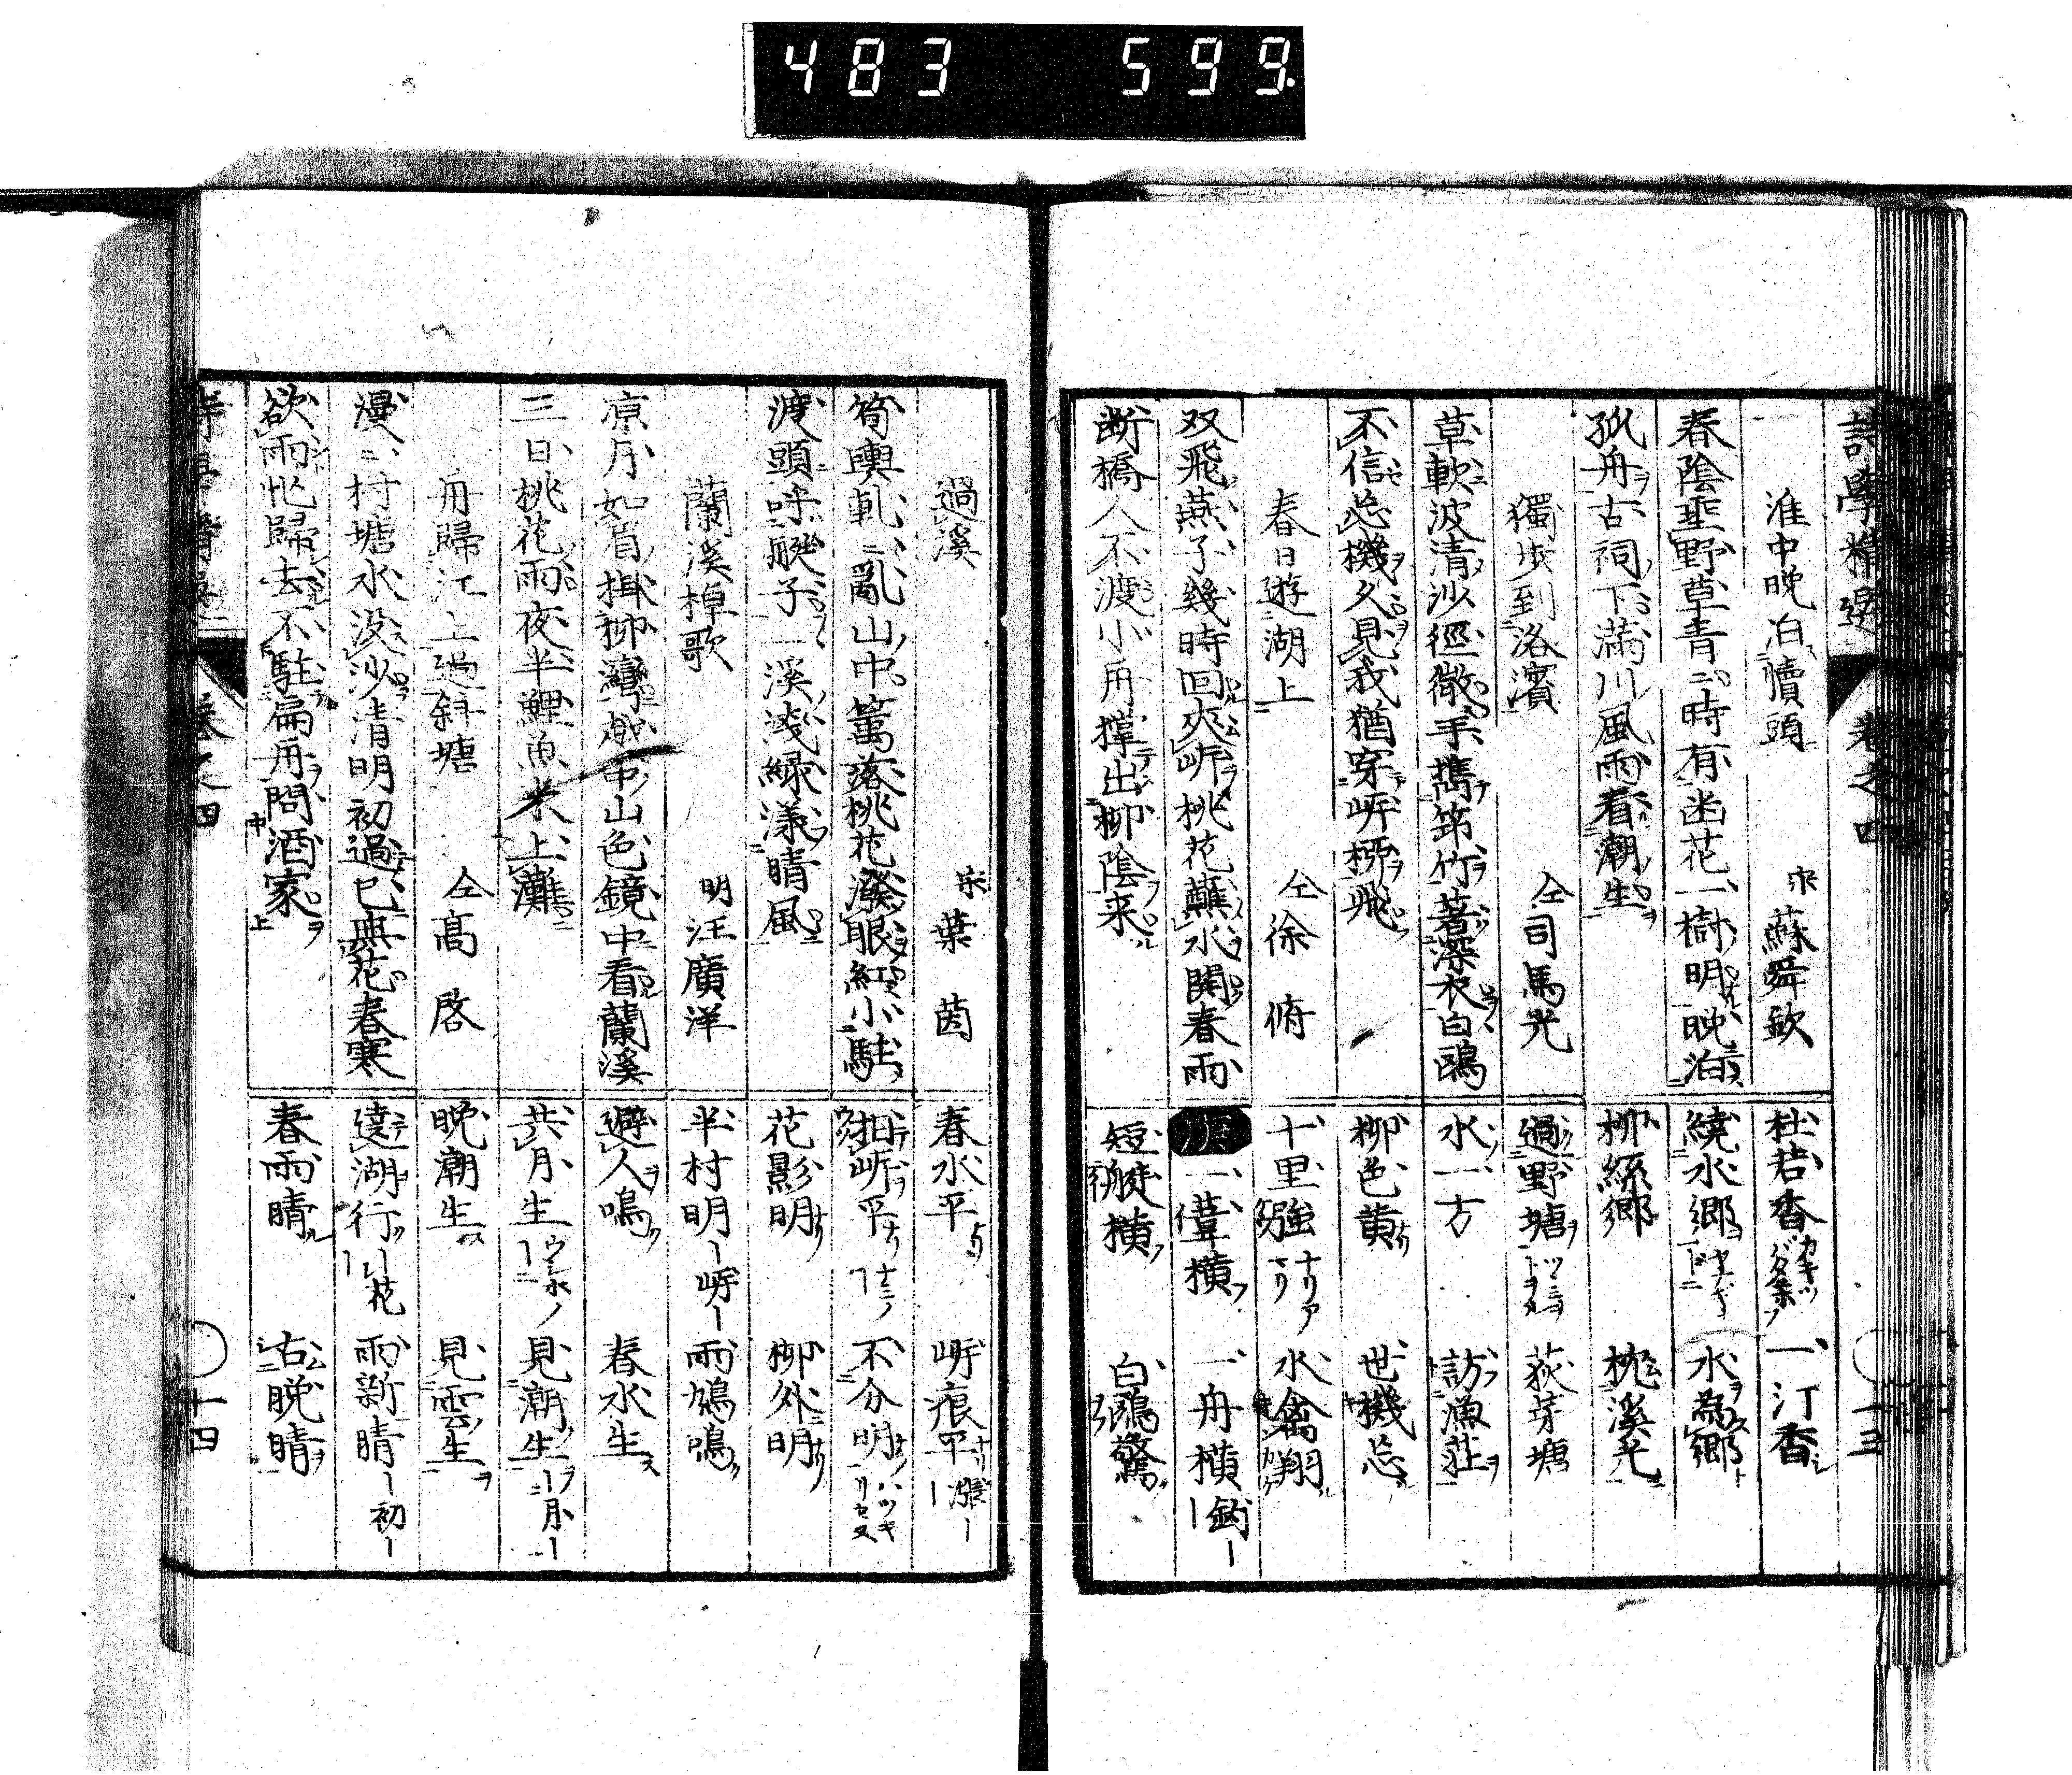 483 599.
詩學精選 卷之四 十三
淮中晚泊犢頭 宋蘇舜欽
春陰垂野草青〻時有幽花一樹明晚泊
孤舟古祠下滿川風雨看潮生
獨步到洛濱 仝司馬光
草軟波清沙徑微手攜筇竹著深衣白鷗
不信忘機久見我猶穿岸柳飛
春日遊湖上 仝徐俯
双飛燕子幾時回夾岸桃花蘸水開春雨
断橋人不渡小舟撑出柳陰来
杜若香 一汀香
繞水郷 水為郷
柳絲郷 枕溪光
過野塘 荻芽塘
水一方 訪漁莊
柳色黄 世機忘
十里強 水禽翔
一葦横 一舟横 釣ー
短艇横 白鷗驚
過溪 宋葉茵
筍輿軋〻亂山中篱落桃花潑眼紅小駐
渡頭呼艇子一溪淺綠漾晴風
蘭溪棹歌 明汪廣洋
凉月如眉掛柳灣越中山色鏡中看蘭溪
三日桃花雨夜半鯉魚来上灘
舟歸江上過斜塘 仝高啓
漫〻村塘水没沙清明初過已無花春寒
欲雨忙歸去不駐扁舟問酒家
春水平 岸痕平 漲ー
拍岸平 不分明 ハッキリセヌ
花影明 柳外明
半村明 ー岸ー 雨鳩鳴
避人鳴 春水生
共月生 見潮生 ー月ー
晚潮生 見雲生
遶湖行 ー花 雨新晴 ー初ー
春雨晴 占晚晴
卷之四 十四